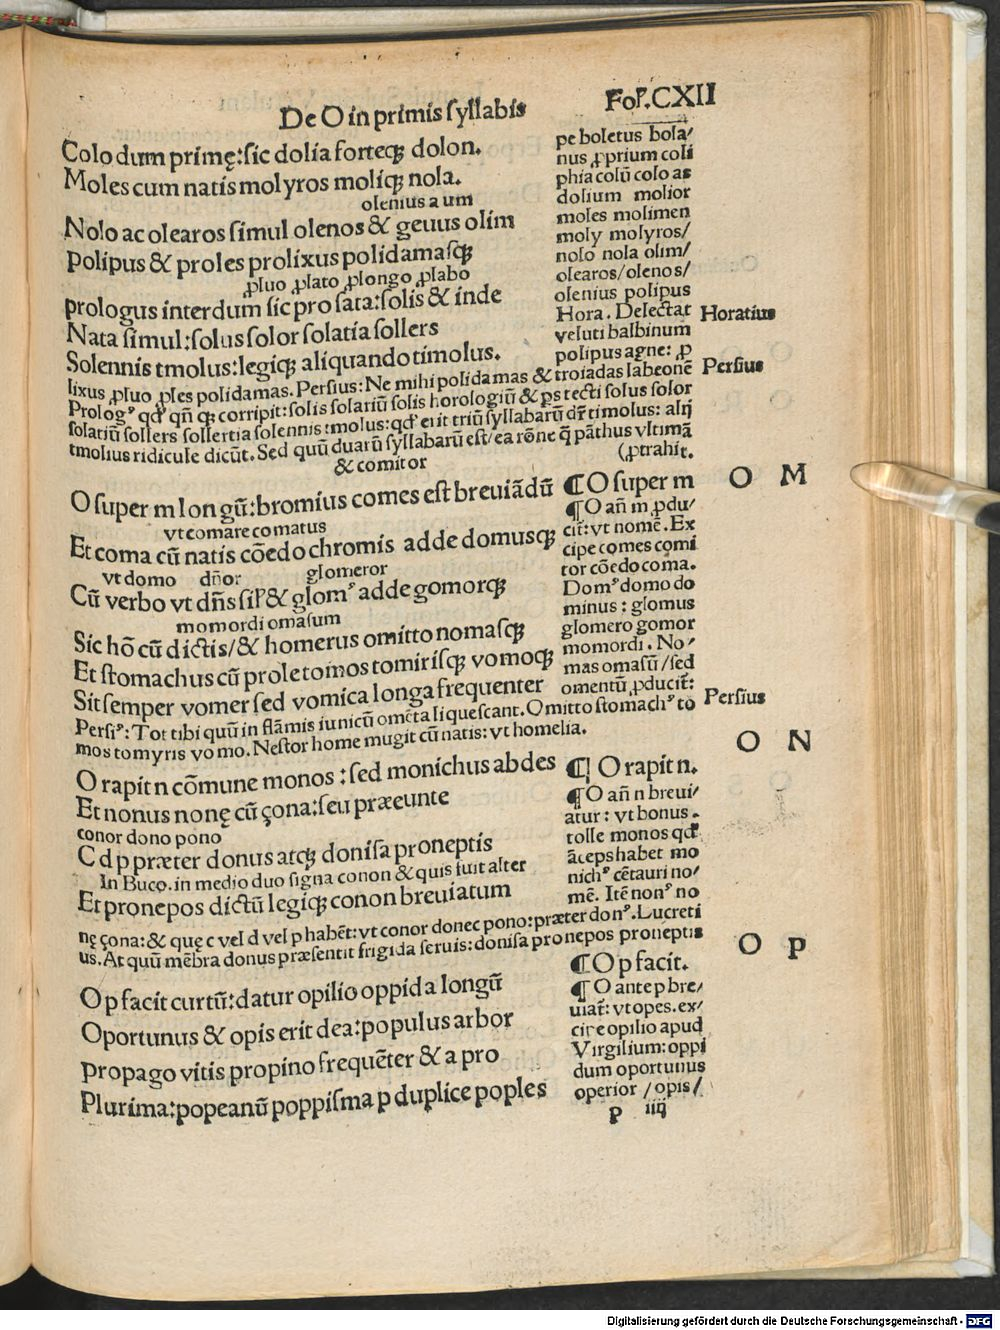 De O in primis syllabis
Foł.CXII
Colo dum primę:sic dolia forteqꝫ dolon.
Moles cum natis molyros moliqꝫ nola.
olenius a um
Nolo ac olearos simul olenos & geuus olim
Polipus & proles prolixus polidamasqꝫ
ꝓluo ꝓlato ꝓlongo ꝓlabo
prologus interdum sic pro sata:solis & inde
Nata simul:solus solor solatia sollers
Solennis tmolus:legiqꝫ aliquando timolus.
pe boletus bola/
nus ꝓprium coli
phia colū colo as
dolium molior
moles molimen
moly molyros/
nolo nola olim/
olearos/olenos/
olenius polipus
Hora. Delectat
veluti balbinum
polipus agne: ꝓ
Horatius
Persius
lixus ꝓluo ꝓles polidamas. Persius: Ne mihi polidamas & troiadas labeonē
Prologꝰ qđ qñ qꝫ corripit:solis solariū solis horologiū & ꝑs tecti solus solor
solatiū sollers sollertia solennis tmolus:qđ erit triū syllabarū dr̄ timolus: alij
tmolius ridicule dicūt. Sed quū duarū syllabarū est/ea rōne q̄ pāthus vltimā
(ꝓtrahit.
& comitor
O super m longū:bromius comes est breuiādū
vt comare comatus
Et coma cū natis cōedo chromis adde domusqꝫ
vt domo dñor glomeror
Cū verbo vt dñs sił & glomꝰ adde gomorqꝫ
momordi omasum
Sic hō cū dictis/& homerus omitto nomasqꝫ
Et stomachus cū prole tomos tomirisqꝫ vomoqꝫ
Sit semper vomer sed vomica longa frequenter
¶ O super m
O M
¶ O añ m ꝓdu/
cit̄:vt nomē. Ex
cipe comes comi
tor cōedo coma.
Domꝰ domo do
minus : glomus
glomero gomor
momordi. No/
mas omasū/sed
omentū ꝓducit̄:
Persius
Persiꝰ: Tot tibi quū in flāmis iunicū omēta liquescant. Omitto stomachꝰ to
mos tomyris vomo. Nestor home mugit cū natis: vt homelia.
O rapit n cōmune monos : sed monichus abdes
Et nonus nonę cū çona:seu præeunte
conor dono pono
C d p præter donus atqꝫ donisa proneptis
In Buco. in medio duo signa conon & quis fuit alter
Et pronepos dictū legiqꝫ conon breuiatum
O N
¶ O rapit n.
¶ O añ n breui/
atur : vt bonus.
tolle monos qđ
āceps habet mo
nichꝰ cētauri no/
mē. Itē nonꝰ no
nę çona:& quę c vel d vel p habēt: vt conor donec pono:præter donꝰ. Lucreti
us. At quū mēbra donus præsentit frigida seruis:donisa pronepos proneptis
O p facit curtū:datur opilio oppida longū
Oportunus & opis erit dea:populus arbor
Propago vitis propino frequēter & a pro
Plurima:popeanū poppisma p duplice poples
O P
¶ O p facit.
¶ O ante p bre/
uiat̄: vt opes. ex/
cipe opilio apud
Virgilium: oppi
dum oportunus
operior / opis/
p iiij
Digitalisierung gefördert durch die Deutsche Forschungsgemeinschaft - DFG